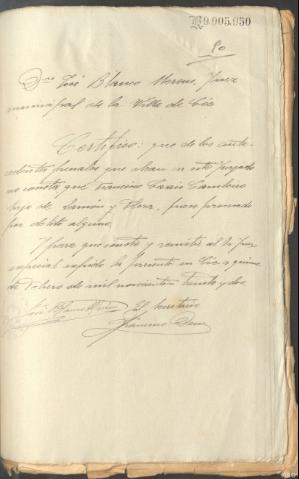 R 9.905.950
90
Don José Blanco Moreno, Juez
municipal de la Villa de
Certifico: que de los ante-
cedentes penales que obran en este Juzgado
no consta que Francisco
hijo de Ramón y Flora, fuese procesado
por delito alguno.
Y para que conste y remita al Sr Juez
especial expido la presente en a quince
de Febrero de mil novecientos treinta y dos.
José Blanco El Secretario